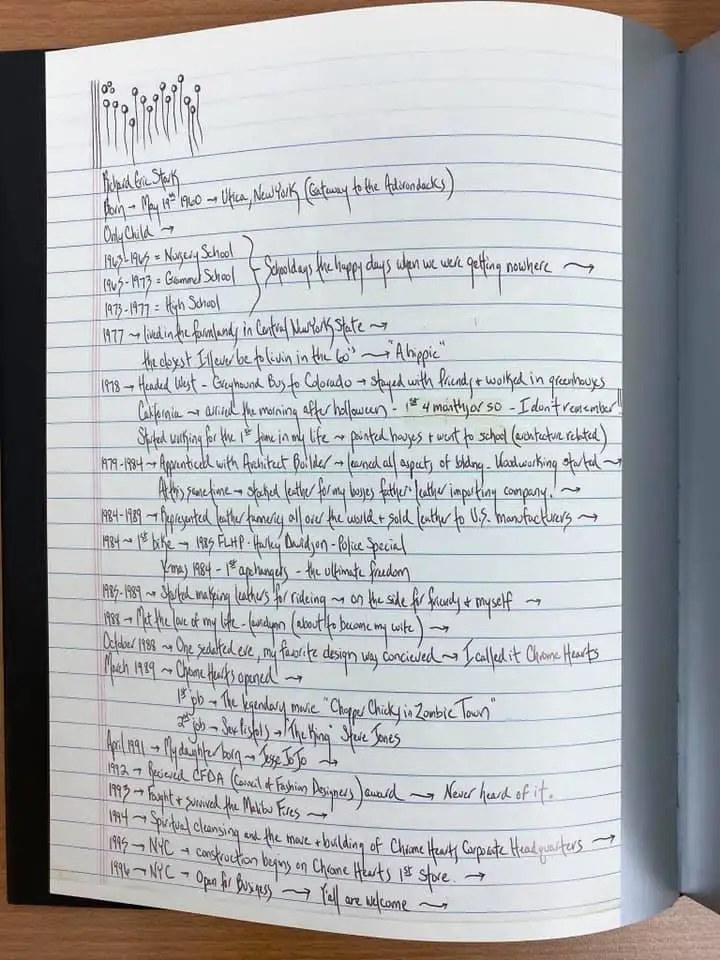 Richard Eric Stark
Born → May 19th 1960 → Utica, New York (Gateway to the Adirondacks)
Only Child →
1963-1965 = Nursery School
1965-1973 = Grammel School
1973-1977 = High School
Schooldays the happy days when we were getting nowhere →
1977 → lived in the farmlands in Central New York State →
the closest I'll ever be to livin in the 60's → "A hippie"
1978 → Headed West - Greyhound Bus to Colorado → stayed with friends + worked in greenhouses
California → arrived the morning after halloween - 1st 4 months or so - I don't remember!!
Started working for the 1st time in my life → painted houses + went to school (architecture related)
1979-1984 → Apprenticed with Architect Builder → learned all aspects of bldng. Woodworking started →
At this same time → stacked leather for my bosses father leather importing company. →
1984-1989 → Represented leather tanneries all over the world + sold leather to U.S. manufacturers →
1984 → 1st bike → 1985 FLHP - Harley Davidson - Police Special
Xmas 1984 - 1st apehangers - the ultimate freedom
1985-1989 → Started making leathers for rideing → on the side for friends + myself →
1988 → Met the love of my life - (about to become my wife) →
October 1988 → One sedated eve, my favorite design was concieved → I called it Chrome Hearts
March 1989 → Chrome Hearts opened →
1st job → The legendary movie "Chopper Chicks in Zombie Town"
2nd job → Sex Pistols → "The King" Steve Jones
April 1991 → My daughter born → Jesse JoJo →
1992 → Recieved CFDA (Council of Fashion Designers) award → Never heard of it.
1993 → Fought + survived the Malibu Fires →
1994 → Spiritual cleansing and the move + building of Chrome Hearts Corporate Headquarters →
1995 → NYC → construction begins on Chrome Hearts 1st Store. →
1996 → NYC → Open for Business → Y'all are welcome →